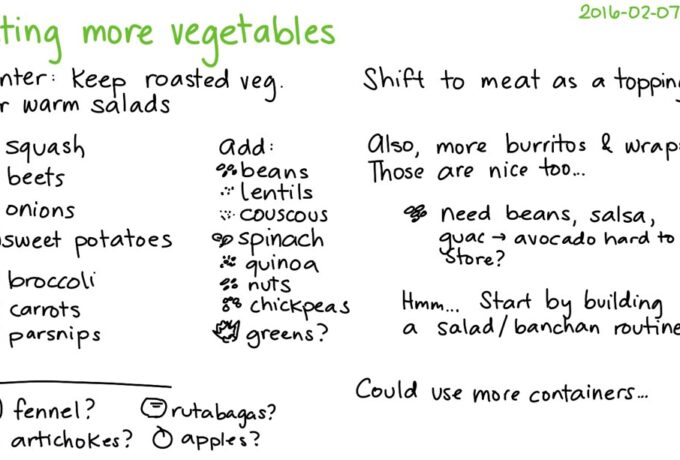 ting more vegetables
2016-02-07
nter: Keep roasted veg.
r warm salads
squash
beets
onions
sweet potatoes
broccoli
carrots
parsnips
add:
beans
lentils
couscous
spinach
quinoa
nuts
chickpeas
greens?
fennel?
rutabagas?
artichokes?
apples?
Shift to meat as a topping
Also, more burritos & wrap
Those are nice too...
need beans, salsa,
guac → avocado hard to
store?
Hmm... Start by building
a salad/banchan routine
Could use more containers...